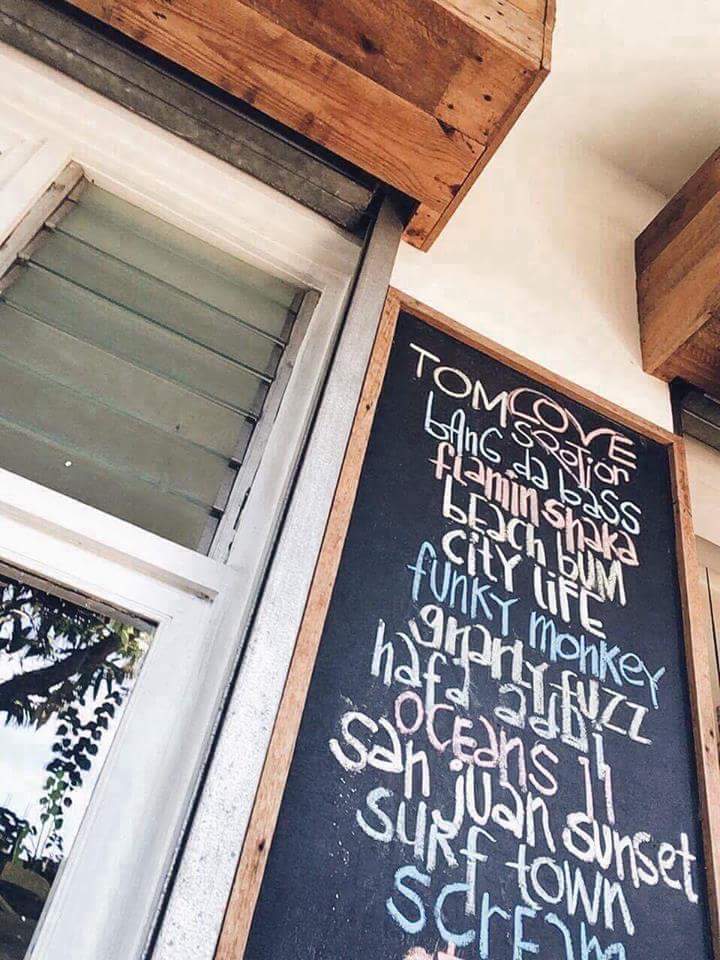 TOM
bAnG da bASS
flamin shaka
bEAch bUM
CiTY lifE
funKY monKEY
gnarly fuzz
hafa adai
OCEANS 11
san juan sunset
surf town
scrEAm